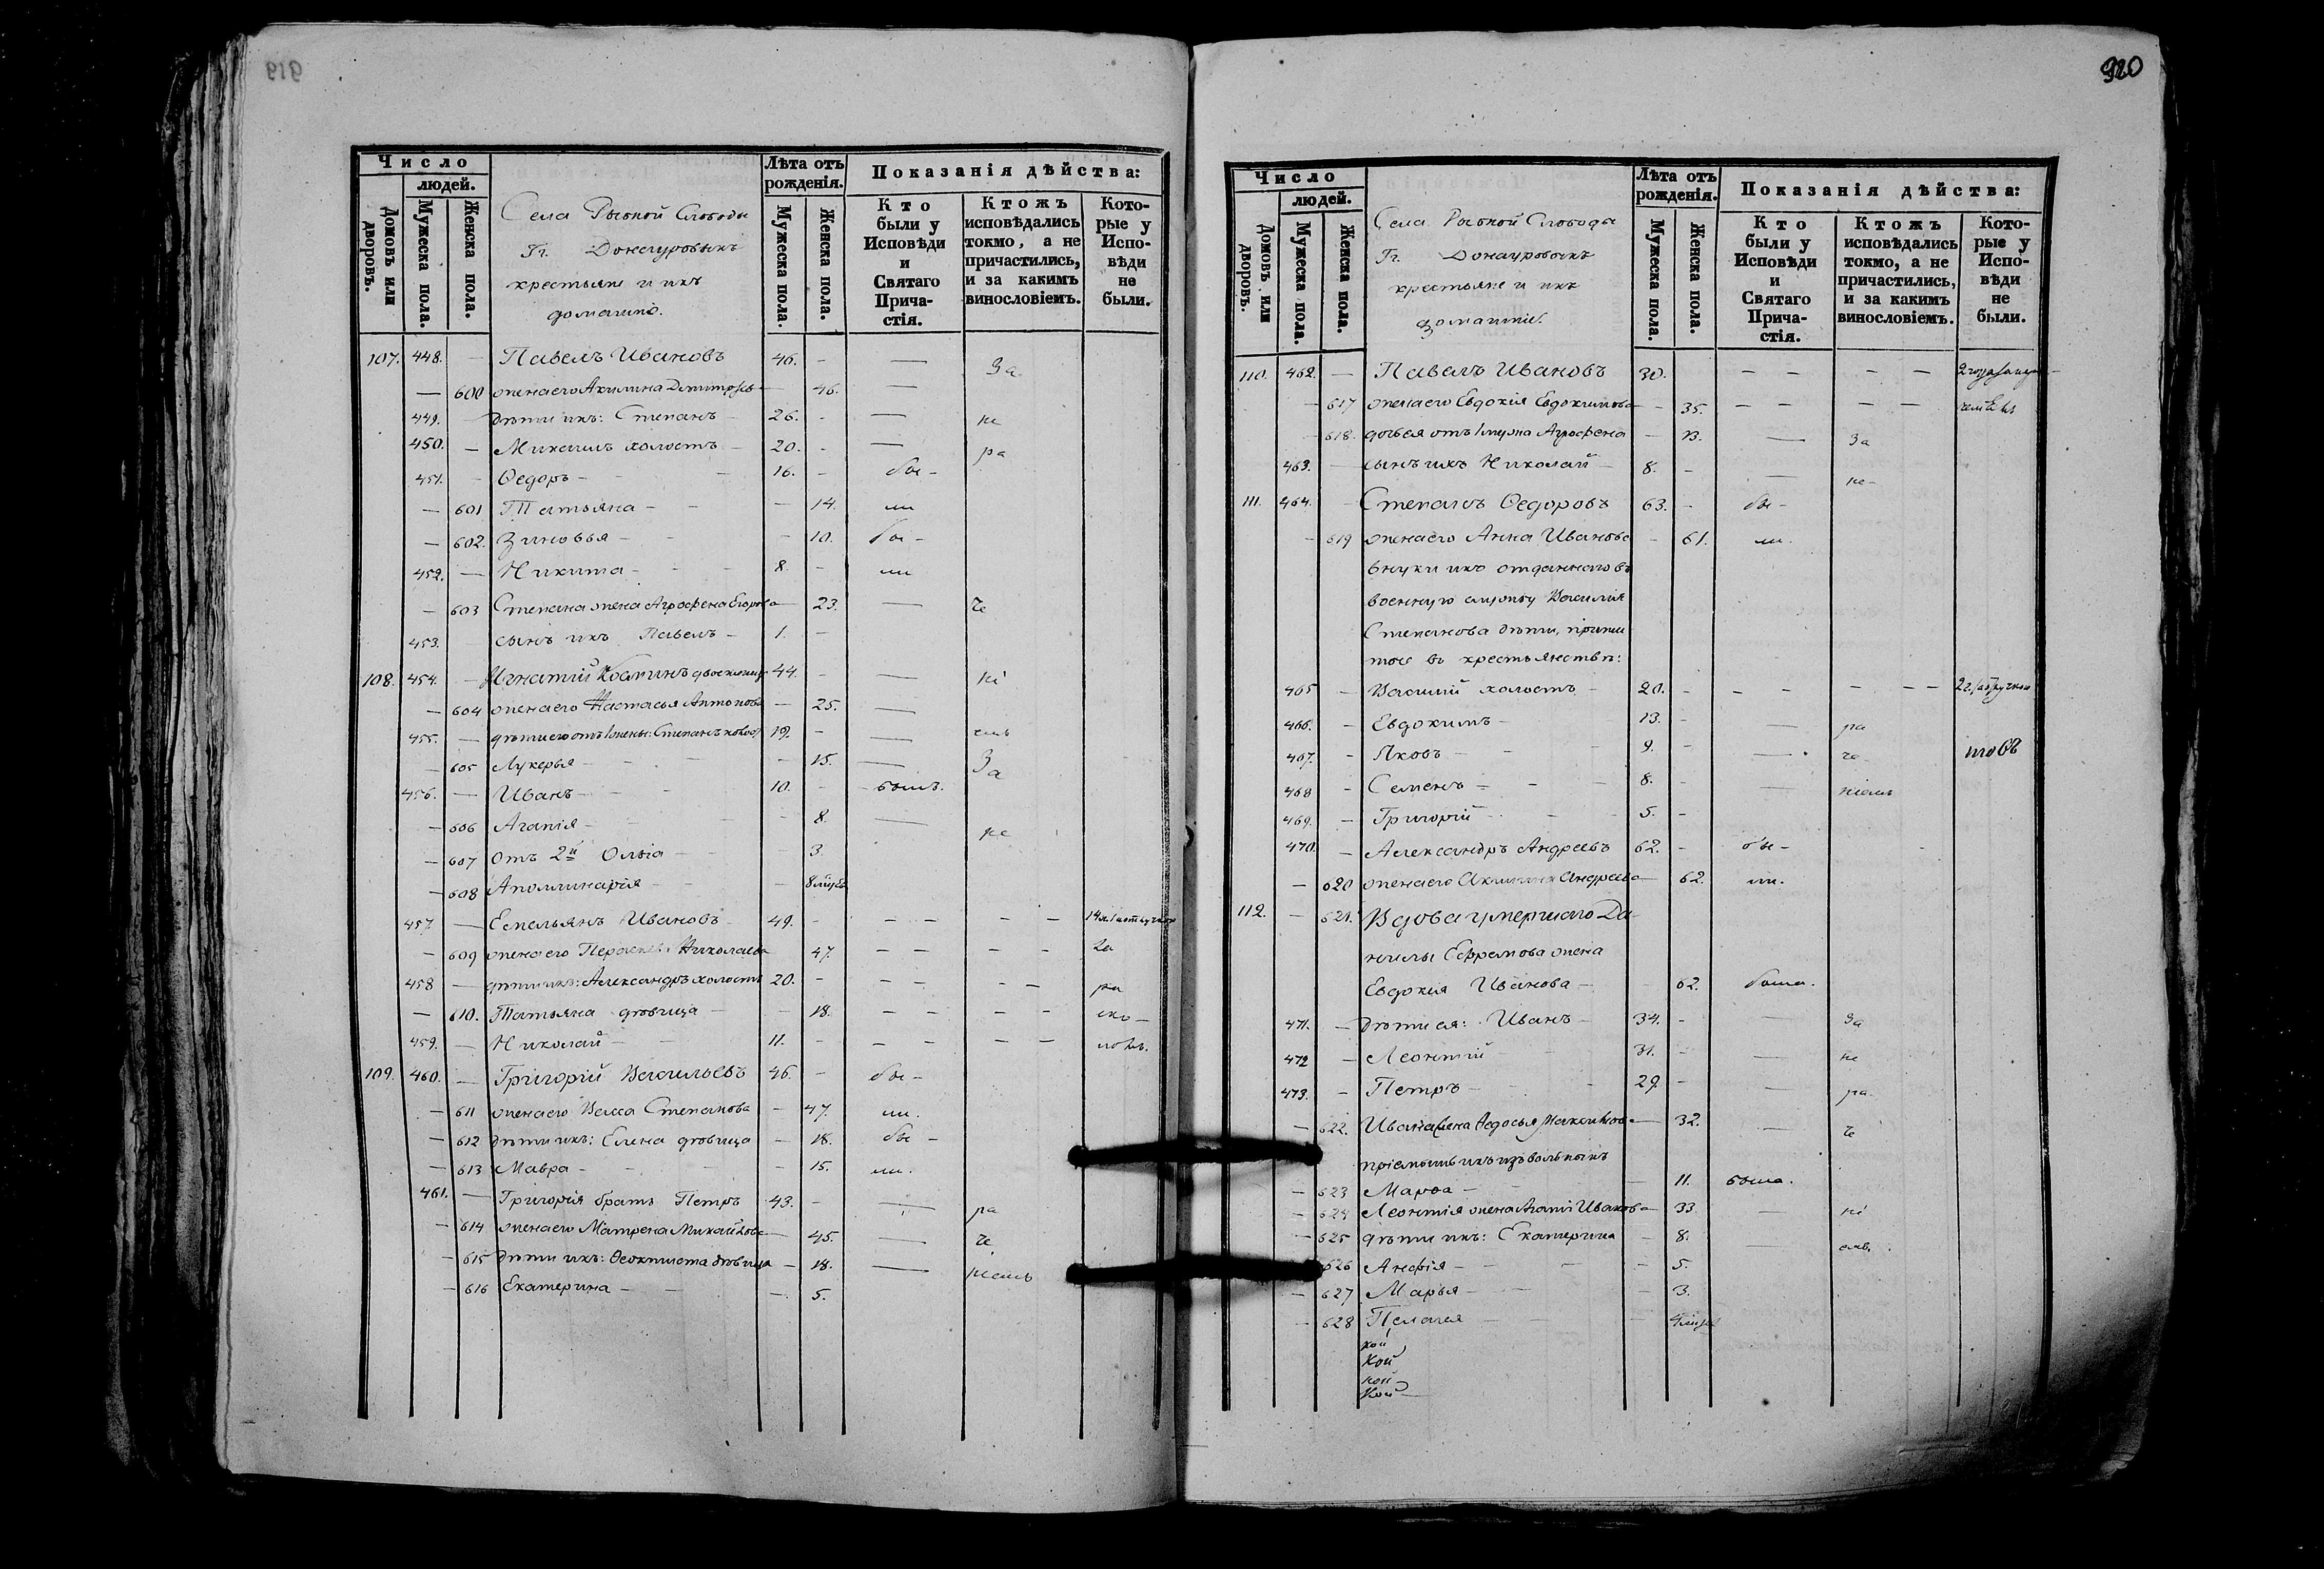 920
Число
людей.
Домовъ или дворовъ.
Мужеска пола.
Женска пола.
Села Рыбной Слободы
Гг. Донауровыхъ
крестьяне и ихъ
домашніе.
Лѣта отъ рожденія.
Мужеска пола.
Женска пола.
Показанія дѣйства:
Кто были у Исповѣди и Святаго Прича-стія.
Ктожъ исповѣдались токмо, а не причастились, и за какимъ винословіемъ.
Кото-рые у Испо-вѣди не были.
107. 448. — Павелъ Ивановъ 46. - — За
— 600 жена его Акилина Дмитріева — 46. —
449. — дѣти ихъ: Степанъ — 26. - — не
450. — Михаилъ холостъ — 20. - — ра
451. - Ѳедоръ - - 16. - бы -
— 601 Татьяна - - — 14. ли
— 602. Зиновья - - - 10. бы -
452. — Никита - - - 8. - ли
— 603 Степана жена Агрофена Егорова — 23. — че
453. сынъ ихъ Павелъ - 1. -
108. 454. — Игнатій 44. - — ні
— 604 жена его Настасья Антонова — 25. —
455. — дѣти его отъ 1 жены: Степанъ 19. - — емъ
— 605 Лукерья - - - - 15. — За
456. — Иванъ - - - 10. - былъ.
— 606 Агапія - - - 8. — не
— 607 отъ 2й Ольга - - 3
— 608 Аполлинарія - - - 8
457. — Емельянъ Ивановъ - 49. - - - - -
— 609 жена его Николаева 47. - - - -
458 — дѣти ихъ: Александръ холостъ 20. - - - - - ра
— 610. Татьяна дѣвица - - 18. - - - -
459. — Николай - - 11. - - - - -
109. 460. — Григорій Васильевъ 46. - бы -
— 611 жена его Васса Степанова - 47. ли.
— 612 дѣти ихъ: Елена дѣвица - 18. бы -
— 613 Мавра - - - 15. ли.
461. — Григорія братъ Петръ 43. - — ра
— 614 жена его Матрена Михайлова — 45. — че
— 615 дѣти ихъ: Ѳеоктиста дѣвица - 18. — ніемъ
— 616 Екатерина - - - 5.
Число
людей.
Домовъ или дворовъ.
Мужеска пола.
Женска пола.
Села Рыбной Слободы
Гг. Донауровыхъ
крестьяне и ихъ
домашніе.
Лѣта отъ рожденія.
Мужеска пола.
Женска пола.
Показанія дѣйства:
Кто были у Исповѣди и Святаго Прича-стія.
Ктожъ исповѣдались токмо, а не причастились, и за какимъ винословіемъ.
Кото-рые у Испо-вѣди не были.
110. 462. — Павелъ Ивановъ 30. - - - -
- 617 жена его Евдокія Евдокимова - 35. - - - -
- 618. дочь ея отъ 1 мужа Агрофена - 13. — За
463. — сынъ ихъ Николай - 8. - — не-
111. 464. - Степанъ Ѳедоровъ 63. - бы -
- 619 жена его Анна Иванова - 61. ли.
внуки ихъ отданнаго въ
военную службу Василія
Степанова дѣти, прижи
тые въ крестьянствѣ:
465 - Василій холостъ - 20. - - - - - -
466. - Евдокимъ - 13. - — ра
467. - Яковъ - - 9. - — че
468 - Семенъ - - 8. - — ніемъ
469. - Григорій - - 5. -
470. - Александръ Андреевъ 62. - бы -
— 620 жена его Акилина Андреева — 62. ли.
112. - 621. Вдова умершаго Да-
нилы Ефремова жена
Евдокія Иванова - 62. была.
471. - дѣти ея: Иванъ - 34. - — За
472 - Леонтій 31. - — не
473. - Петръ - - 29. - — ра
— 622. Ивана жена Ѳедосья Максимова — 32. — че
пріемышъ ихъ изъ вольныхъ
- 623 Марѳа - - 11. была.
- 624 Леонтія жена Агапія Иванова 33. — ні
- 625 дѣти ихъ: Екатерина - 8. — емъ.
626 Анфія - - - 5.
- 627 Марья - - 3.
- 628 Пелагея - - 4
кой
кой
кой
кой